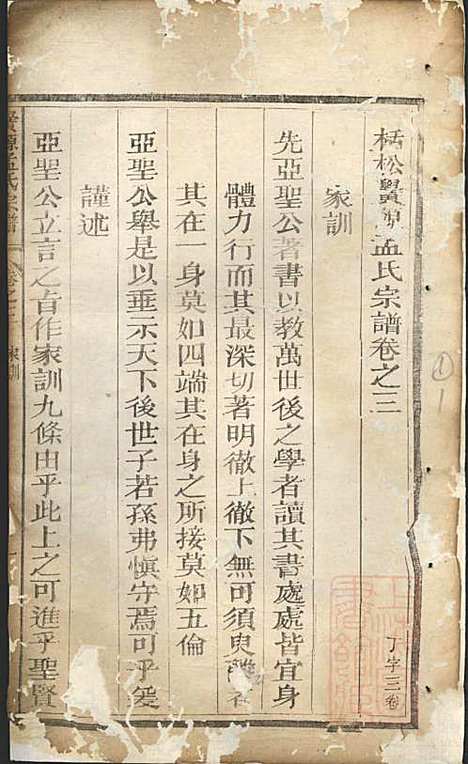 栝松㘿源孟氏宗譜卷之三
丁字三卷
家訓
先亞聖公著書以教萬世後之學者讀其書處處皆宜身
體力行而其最深切著明徹上徹下無可須臾離者
其在一身莫如四端其在身之所接莫如五倫
亞聖公舉是以垂示天下後世子若孫弗愼守焉可乎爰
謹述
亞聖公立言之旨作家訓九條由乎此上之可進乎聖賢
源孟氏宗譜
卷之三
家訓
①
1